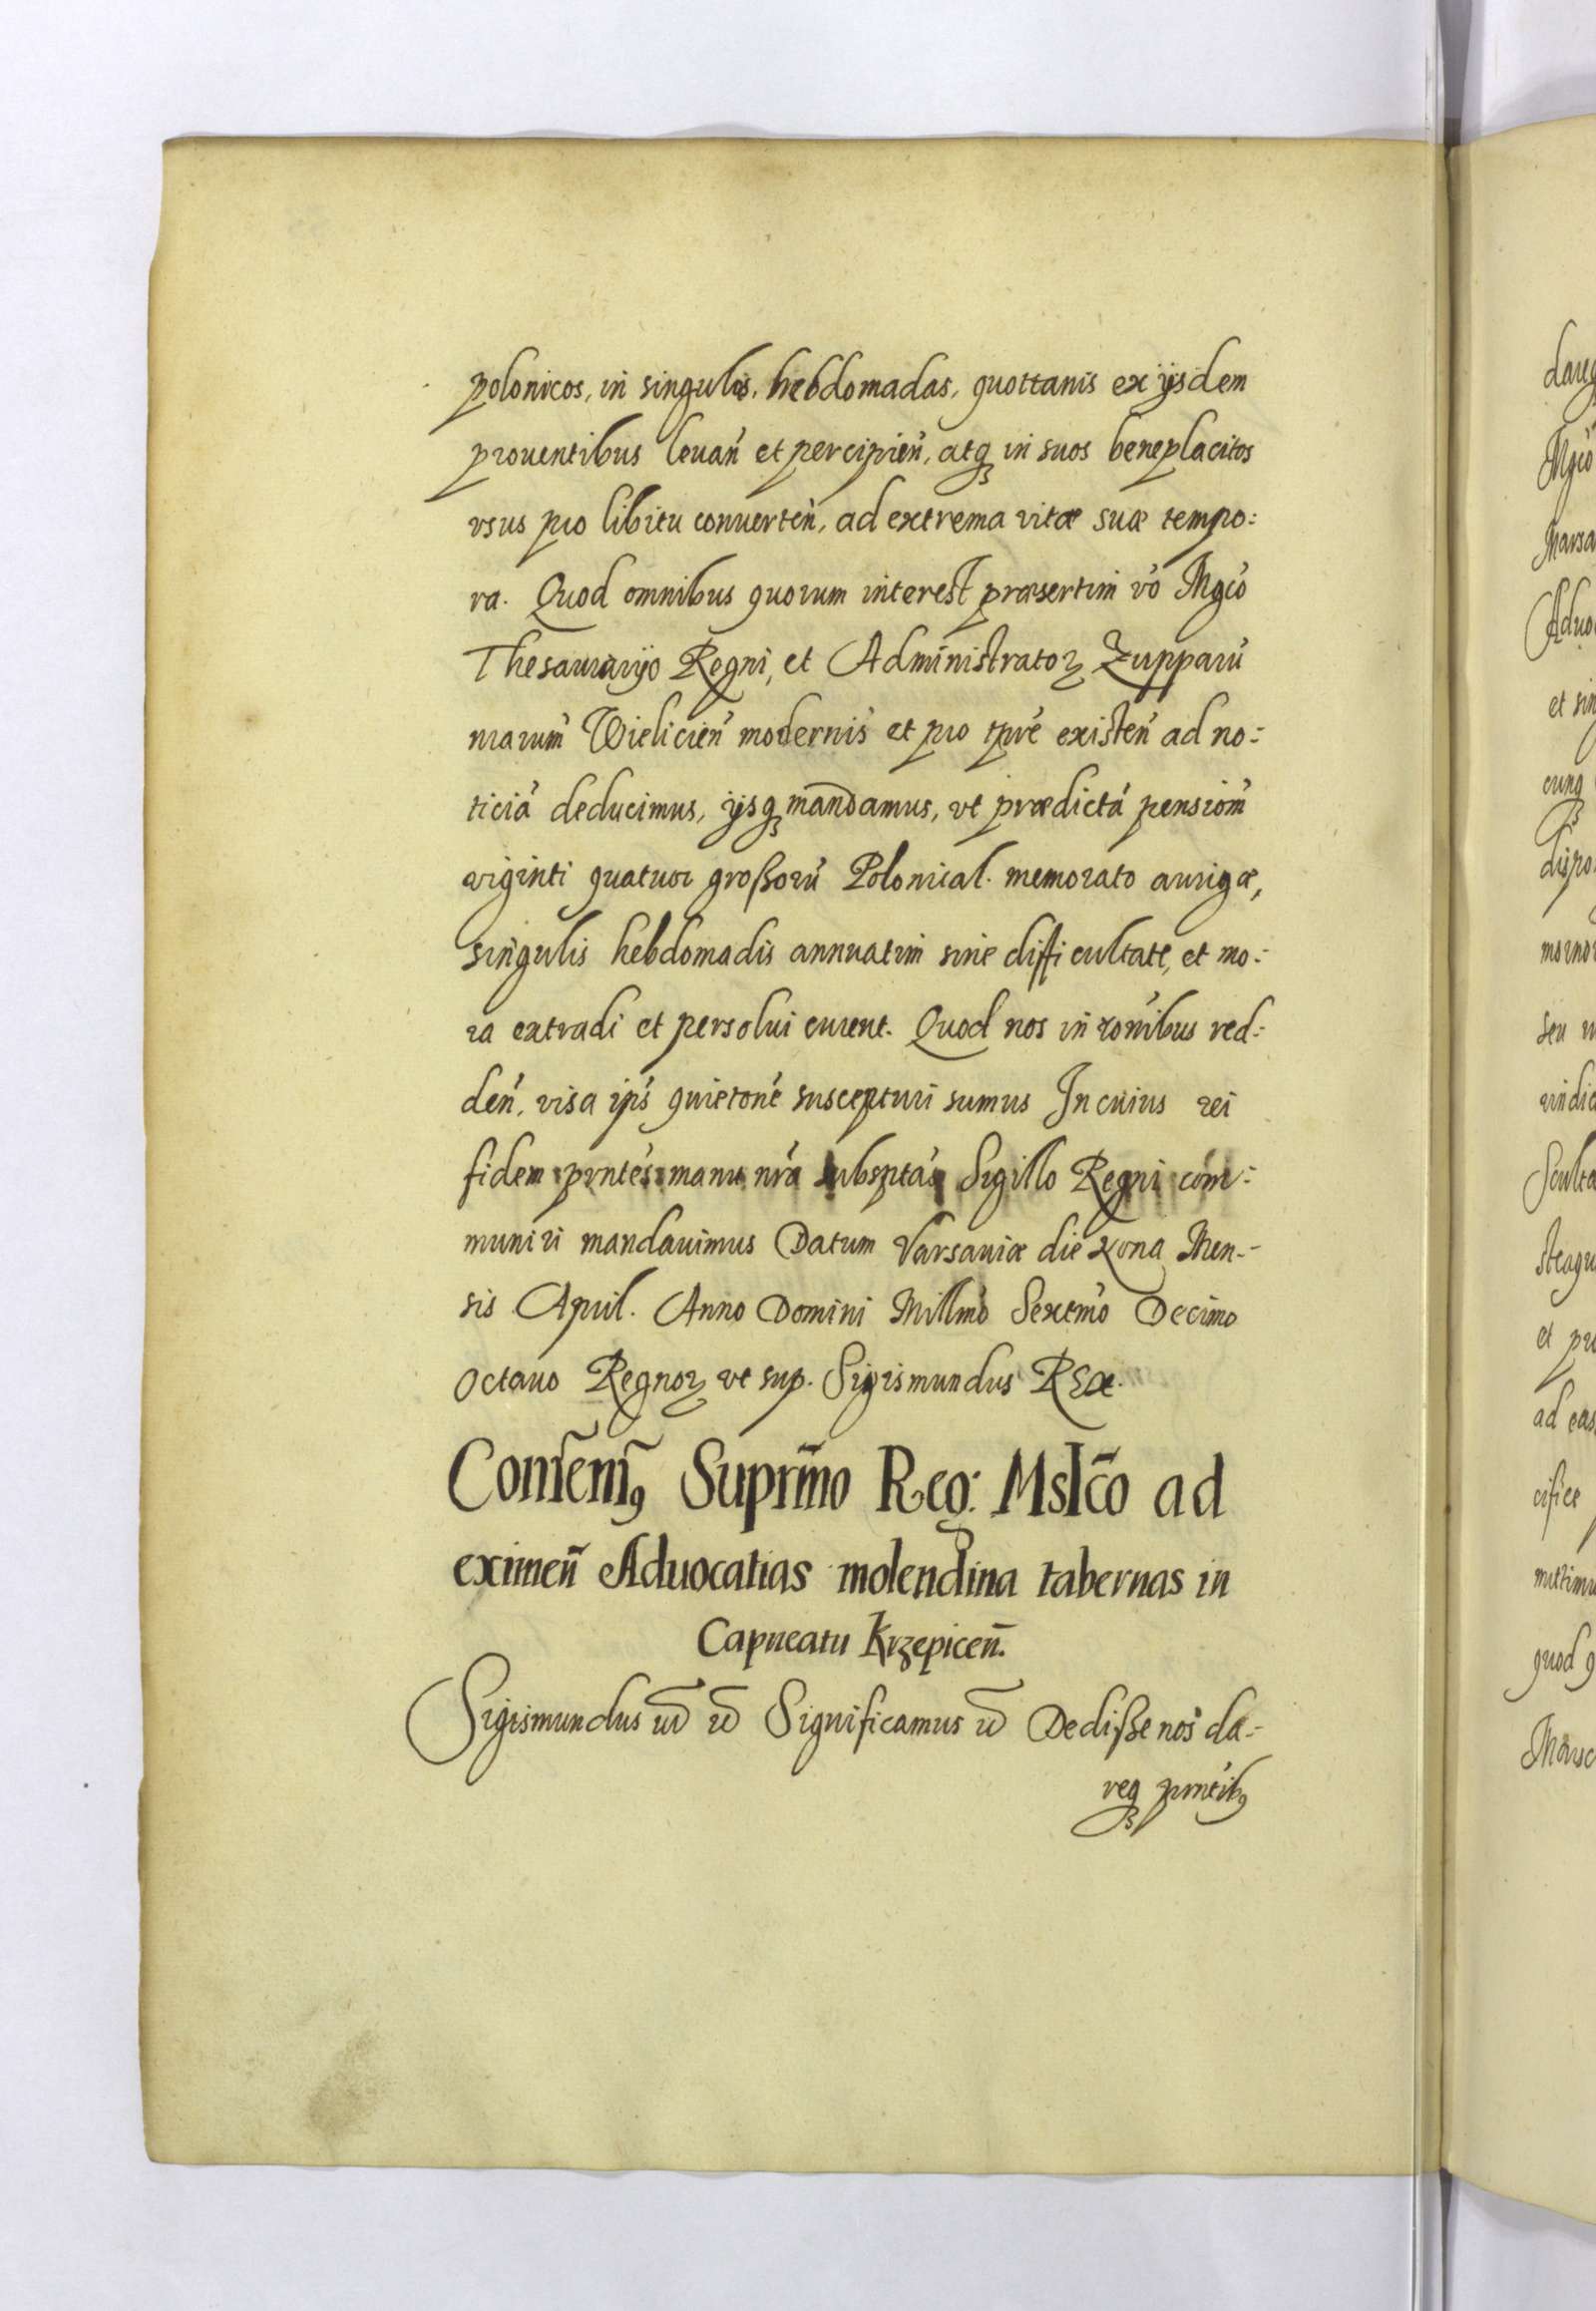 polonicos, in singulis, hebdomadas, quottanis ex ijsdem
prouentibus leuan̄ et percipien̄, atq₃ in suos beneplacitos
vsus pro libitu conuerten̄, ad extrema vitæ suæ tempo:
ra. Quod omnibus quorum interest præsertim vō Mgcō
Thesaurarijo Regni, et Administratoꝝ Zupparū
nrarum̄ Wielicien̄ modernis et pro tp̄re existen̄ ad no:
ticiā deducimus, ijsq₃ mandamus, vt prædictā pensiom̄
viginti quatuor großorū Polonical. memorato aurigæ,
singulis hebdomadis annuatim sine difficultate, et mo:
ra extradi et persolui curent. Quod nos in ronibus red:
den̄, visa ip̄s quietonē suscepturi sumus In cuius rei
fidem pr̄ntes manu nr̄a subsptas Sigillo Regni com̄:
muniri mandauimus Datum Varsauiæ die Xona Men:
sis April. Anno Domini Millmō Sexcmō Decimo
octauo Regnoꝝ vt sup. Sigismundus Rex.
Suprm̄o Reg: ad
eximen̄ Aduocatias molendina tabernas in
Capneatu Krzepicen̄.
Sigismundus Significamus Dediße nos da:
req₃ prntib₉
damg
Mgcō
Marsa
Aduo
et sin
cunq
dispo
seu
vindic
Sculte
et pr
ad eas
cifice
mittimu
quod q